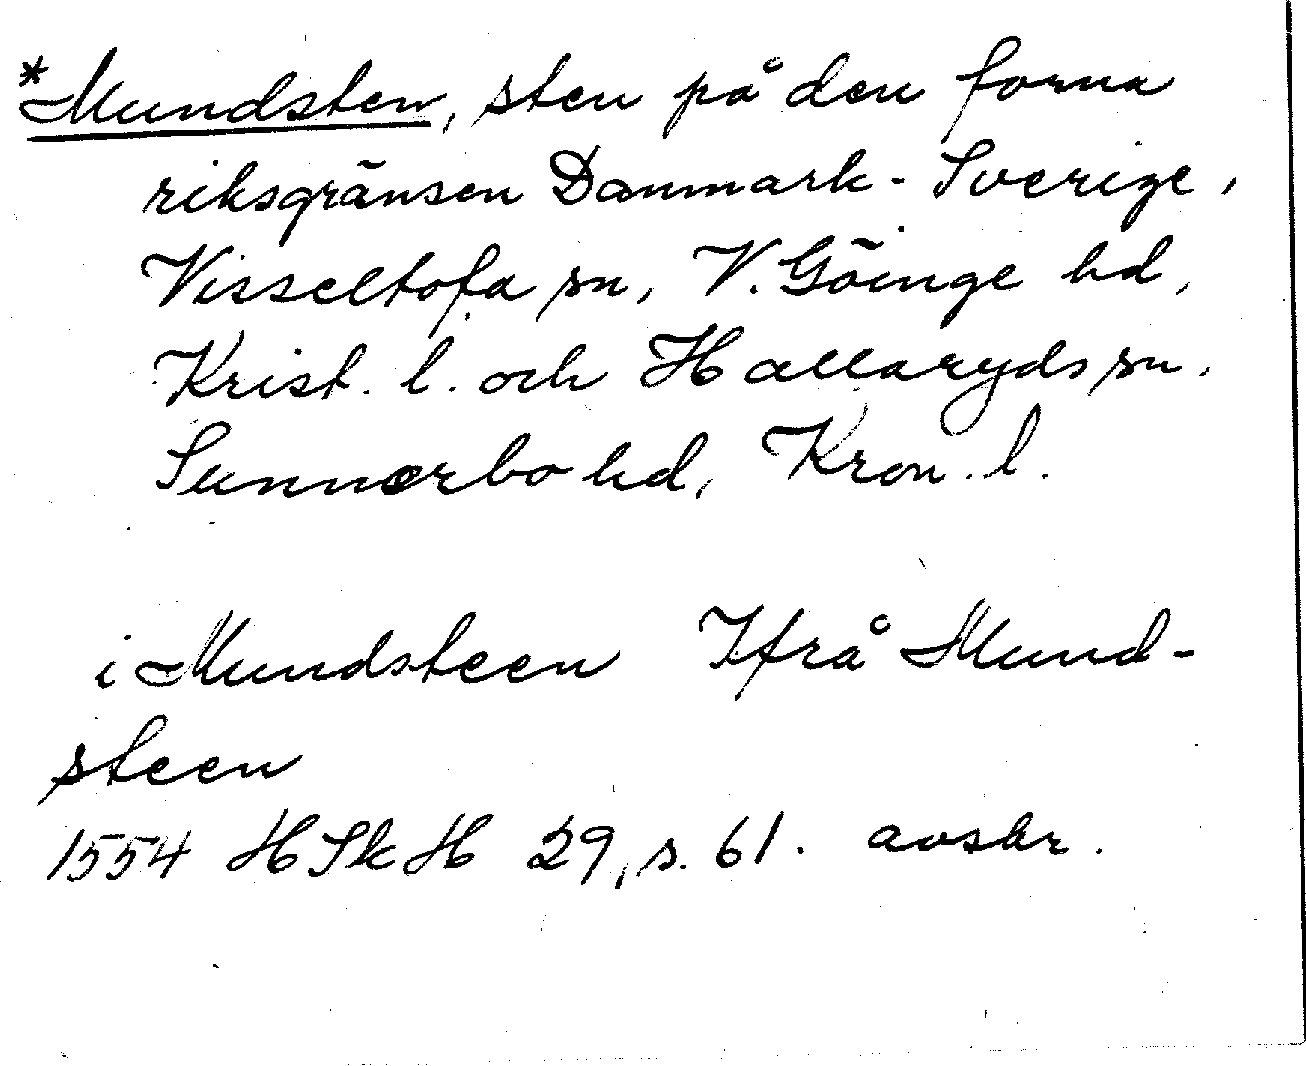 *Mundsten, sten på den forna
riksgränsen Danmark - Sverige,
Visseltofa sn, V. Göinge hd,
Krist. l. och Hallaryds sn,
Sunnerbo hd, Kron. l.
i Mundsteen Ifrå Mund-
steen
1554 HSkH 29, s. 61. avskr.